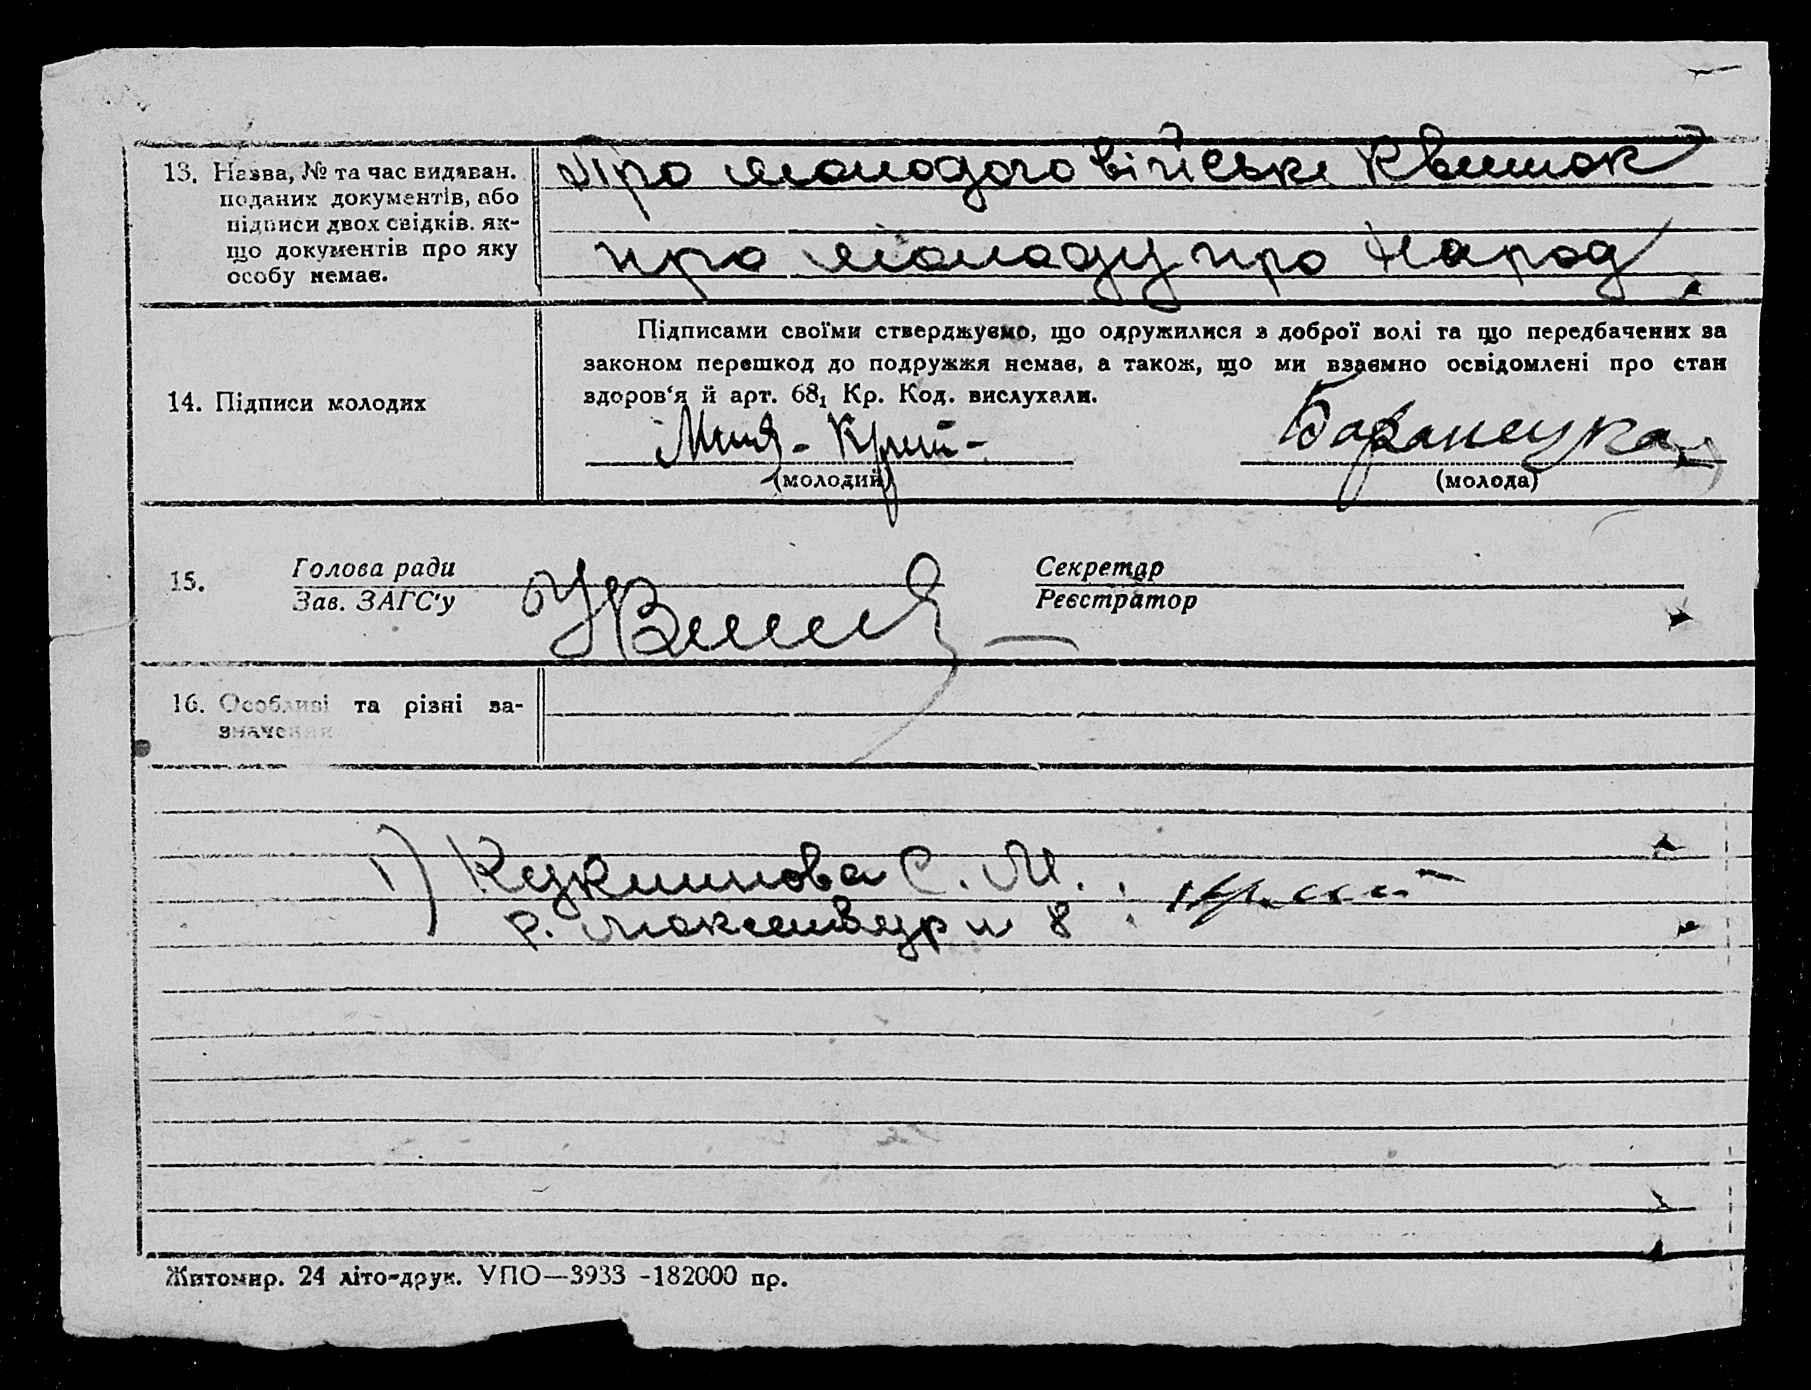 13. Назва, № та час видаван.
поданих документів, або
підписи двох свідків. як-
що документів про яку
особу немає.
Про молодого військ. Квиток
про молоду про народ
14. Підписи молодих
Підписами своїми стверджуємо, що одружилися з доброї волі та що передбачених за
законом перешкод до подружжя немає, а також, що ми взаємно освідомлені про стан
здоров‘я й арт. 68₁ Кр. Код. вислухали.
Баранецка
(молодий)
(молода)
15.
Голова ради
Зав. ЗАГС'у
Секретар
Реєстратор
16. Особливі та різні за-
значення
1) С. М.
р. 8
Житомир. 24 літо-друк. УПО—3933 -182000 пр.